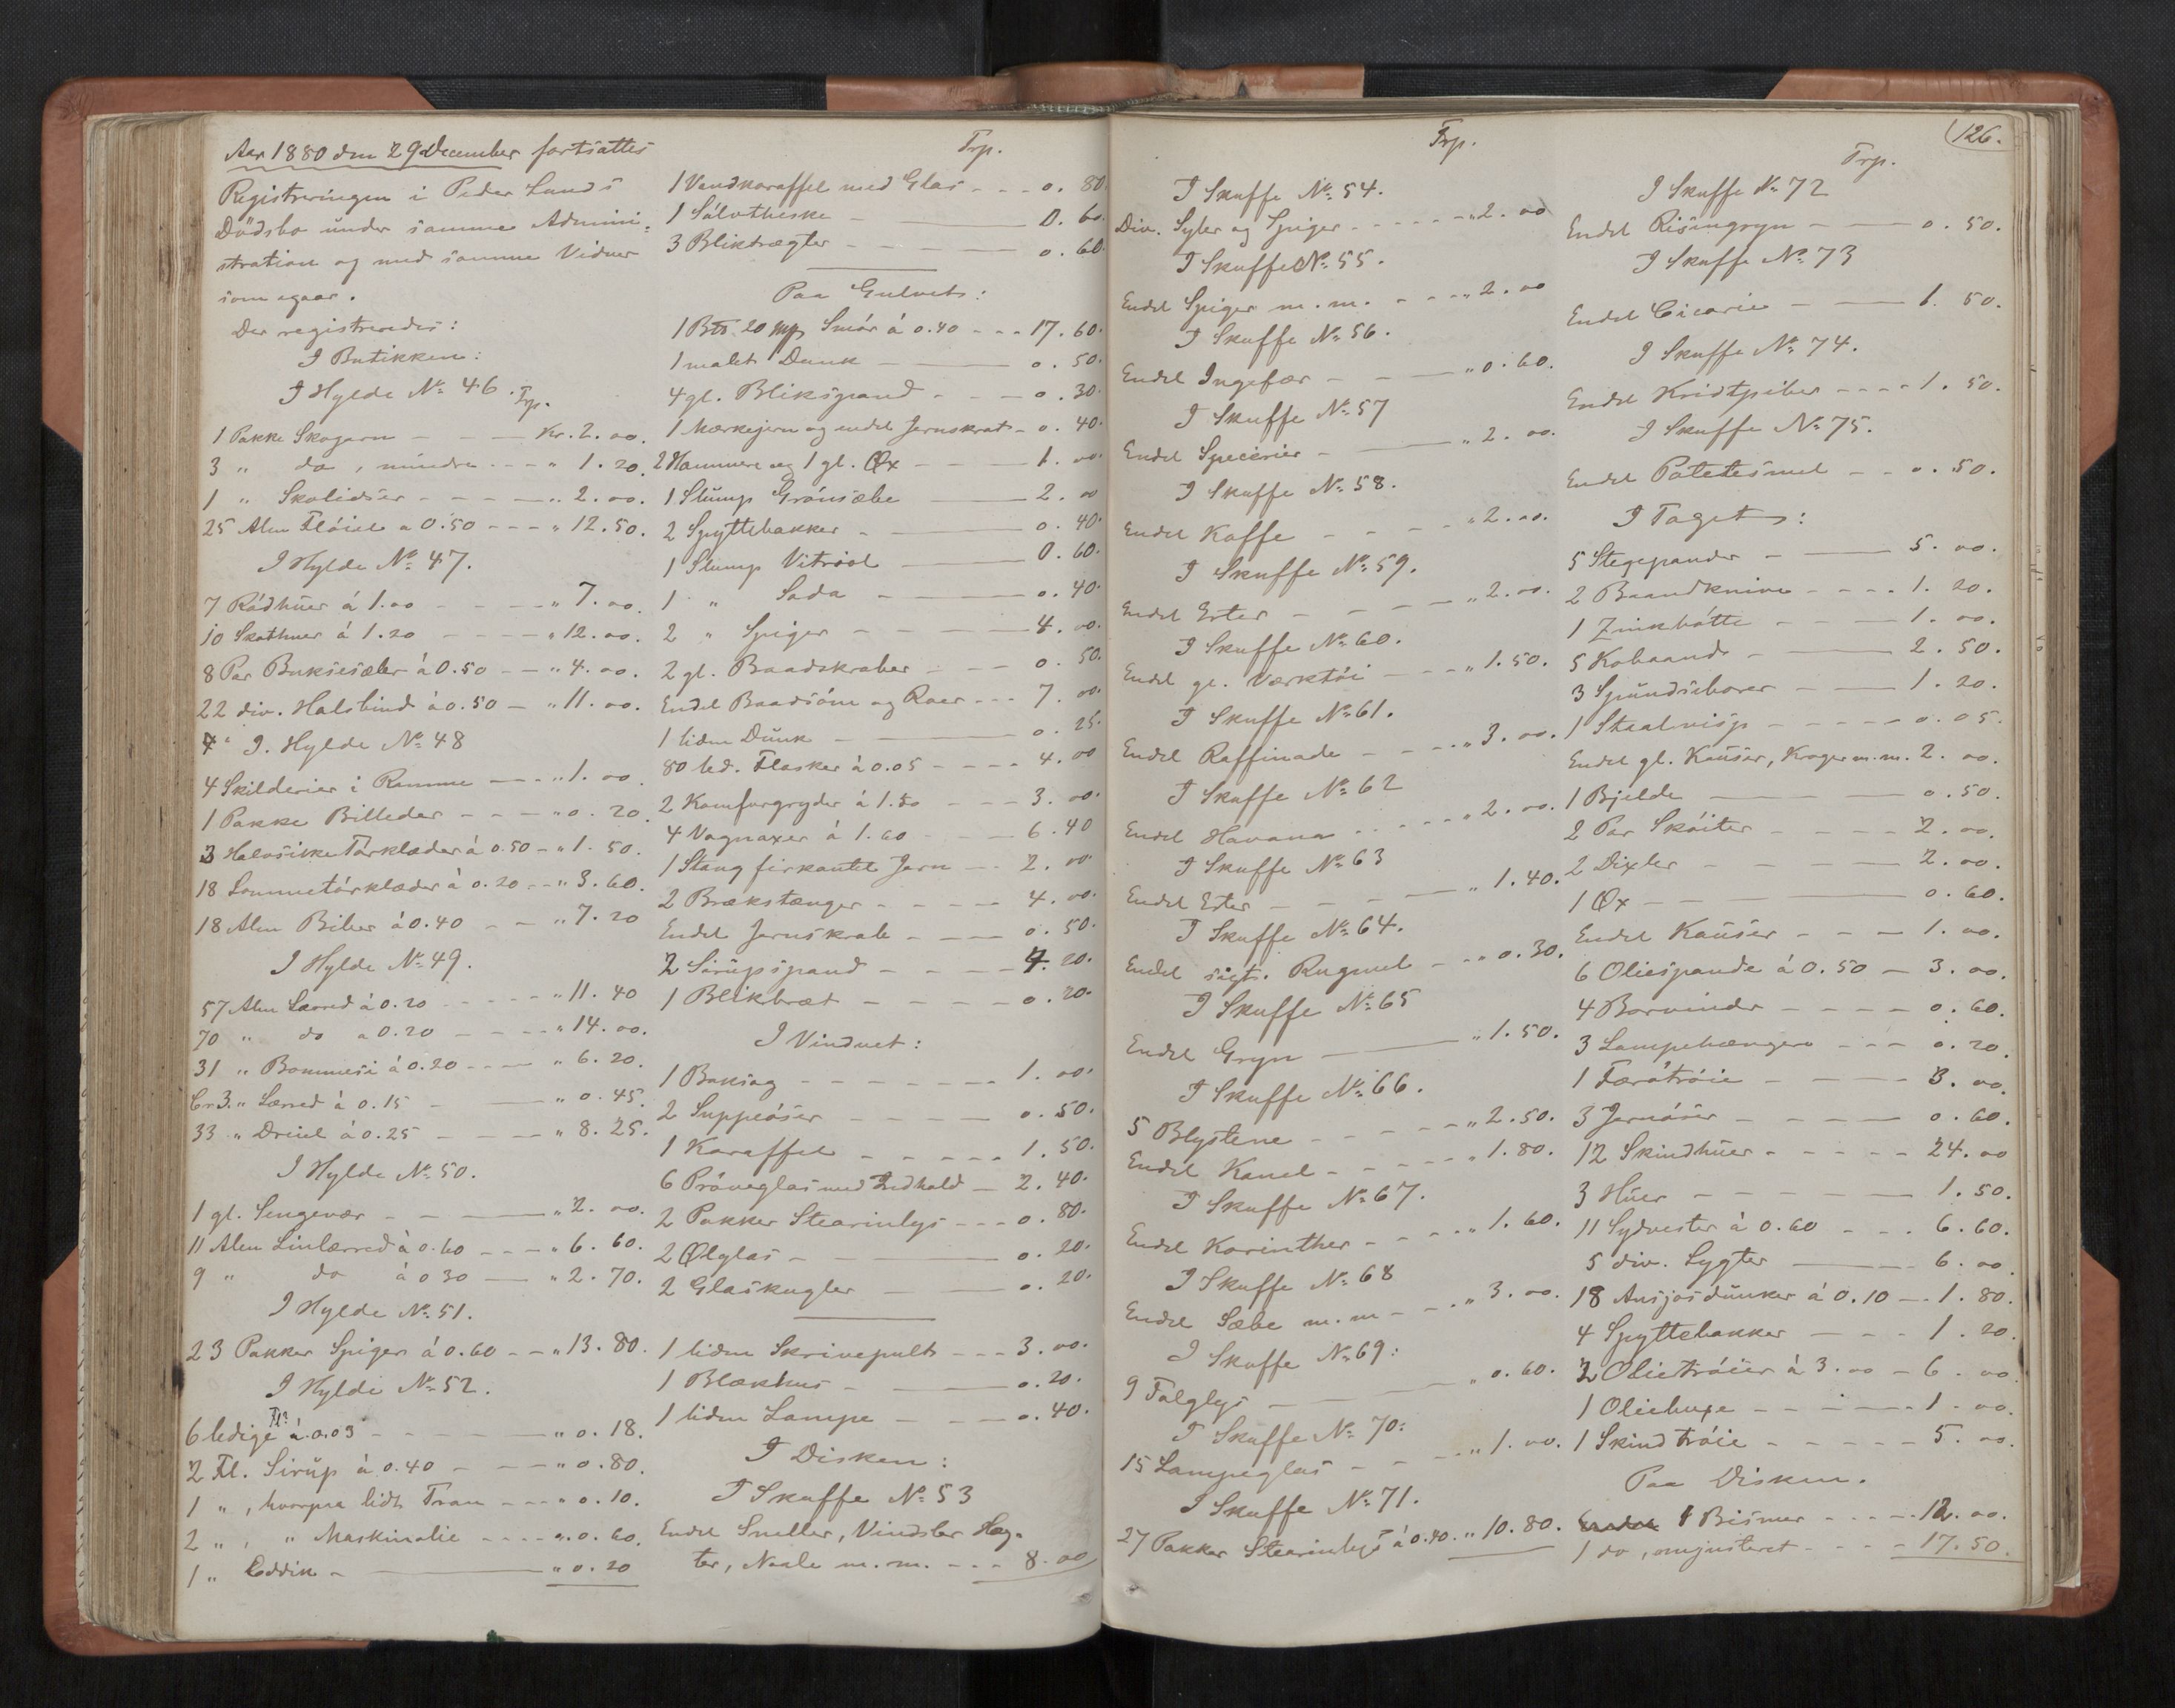 Aar 1880 den 29 December fortsattes
Registreringen i Peder Lunds
Dödsbo under samme Admini-
stration og med samme Vidner
som igaar.
Der registreredes:
I Butikken:
I Hylde No 46. Trp.
1 Pakke Skogarn - - Kr. 2. 00.
3 " do, mindre - - " 1. 20.
1 " Skolidser - - - " 2. 00.
25 Alen Flöiel a 0.50 - - - " 12. 50.
I Hylde No 47.
7 Rödhuer á 1.00 - - - " 7. 00.
10 Skothuer á 1.20 - - - " 12. 00.
8 Par Buksesæler á 0.50 - - " 4. 00.
22 div. Halsbind á 0.50 - " 11. 00.
I Hylde No 48
4 Skilderier i Ramme - - " 1. 00.
1 Pakke Billeder - - - " 0. 20.
3 Halvsilke Törklæder á 0.50 - " 1. 50.
18 Lommetörklæder á 0.20 - - " 3. 60.
18 Alen Biber á 0.40 - - " 7. 20
I Hylde No 49.
57 Alen Lærred á 0.20 - - - " 11. 40
70 " do a 0.20 - - - " 14. 00.
31 " Bommesi á 0.20 - - - " 6. 20.
Cr 3. " Lærred á 0.15 - - " 0. 45.
33 " Dreiel á 0.25 - - - " 8. 25.
I Hylde No 50.
1 gl. Sengevær - - - " 2. 00.
11 Alen Linlærred á 0.60 - - - " 6. 60.
9 " do á 0 30 - " 2. 70.
I Hylde No 51.
23 Pakker Spiger á 0.60 - - " 13. 80.
I Hylde No 52.
6 ledige Fl. á 0.03 - - - " 0. 18.
2 Fl. Sirup á 0.40 - - - " 0. 80.
1 ", hvorpaa lidt Tran - - - " 0. 10.
2 ", " Maskinolie - - - " 0. 60.
1 " Eddik - - " 0. 20
Trp.
1 Vandkaraffel med Glas - - - 0. 80.
1 Sölvtheske - - 0. 60.
3 Bliktragter - - - 0. 60.
Paa Gulvet:
1 Btt. 20 Mp Smör á 0.40 - - - 17. 60.
1 malet Dunk - - 0. 50.
4 gl. Blikspand - - - 0. 30.
1 Mærkejern og endel Jernskrab - 0. 40.
2 Hammere og 1 gl. Öx - - - 1. 00.
1 Slump Grönsæbe - 2. 00
2 Spyttebakker - - 0. 40.
1 Slump Vitriol - 0. 60.
1 " Soda - - 0. 40.
2 " Spiger - - - 4. 00.
2 gl. Baadskraber - - - 0. 50.
Endel Baadsöm og Roer - - - 7. 00.
1 liden Dunk - - 0. 25.
80 led. Flasker á 0.05 - - - - 4. 00
2 Komfurgryder á 1.50 - - - 3. 00.
4 Vognaxer á 1.60 - - - 6. 40
1 Stang firkantet Jern - - 2. 00.
2 Brækstænger - - - - 4. 00.
Endel Jernskrab - - - 0. 50.
2 Sirupsspand - - - - 4. 20.
1 Blikbræt - - - - 0. 20.
I Vinduet:
1 Baksag - - - - - - - 1. 00.
2 Suppeöser - - - - 0. 50.
1 Karaffel - - - - - 1. 50.
6 Pröveglas med Indhold - 2. 40.
2 Pakker Stearinlys - - - 0. 80.
2 Ölglas - - 0. 20.
2 Glaskugler - - 0. 20.
1 liden Skrivepult - - - 3. 00.
1 Blækhus - - 0. 20.
1 liden Lampe - - - 0. 40.
I Disken:
I Skuffe No 53
Endel Sneller, Vindsler Hæg-
ter, Naale m. m. - - - 8. 00
Trp.
I Skuffe No 54.
Div. Syler og Spiger - - - - - " 2. 00
I Skuffe No 55.
Endel Spiger m. m. - - - " 2. 00
I Skuffe No 56.
Endel Ingefær - - - " 0. 60.
I Skuffe No 57
Endel Specerier - - " 2. 00.
I Skuffe No 58.
Endel Kaffe - - - - " 2. 00.
I Skuffe No 59.
Endel Erter - - - - " 2. 00.
I Skuffe No 60.
Endel gl. Værktöi - - - " 1. 50.
I Skuffe No 61.
Endel Raffinade - - - - " 3. 00.
I Skuffe No 62
Endel Havana - - - - - " 2. 00.
I Skuffe No 63
Endel Erter - - - - " 1. 40.
I Skuffe No 64.
Endel sigt. Rugmel - - " 0. 30.
I Skuffe No 65
Endel Gryn - " 1. 50.
I Skuffe No 66.
5 Blystene - - - - - " 2. 50.
Endel Kanel - - - - - " 1. 80.
I Skuffe No 67.
Endel Korinther - - - - " 1. 60.
I Skuffe No 68
Endel Sæbe m. m - - - " 3. 00.
I Skuffe No 69:
9 Talglys - - " 0. 60.
I Skuffe No 70:
15 Lampeglas - - - - " 1. 00.
I Skuffe No 71.
27 Pakker Stearinlys á 0.40. " 10. 80.
126.
Trp.
I Skuffe No 72
Endel Risengryn - - 0. 50.
I Skuffe No 73
Endel Cicorie - - 1. 50.
I Skuffe No 74.
Endel Kridtpiber - - - - 1. 50.
I Skuffe No 75.
Endel Potetesmel - - 0. 50.
I Taget:
5 Stegepander - - 5. 00.
2 Baandknive - - - - 1. 20.
1 Zinkbötte - - - 1. 00.
5 Kobaand - - 2. 50.
3 Spundsborer - - 1. 20.
1 Staalvisp - - - - - 0. 05.
Endel gl. Kauser, Kroger m. m. 2. 00.
1 Bjelde - - 0. 50.
2 Par Sköiter - - - - 2. 00.
2 Dixler - - - - 2. 00.
1 Öx - - - 0. 60.
Endel Kauser - - - 1. 00.
6 Oliespande á 0.50 - 3. 00.
4 Borvinder - - - - 0. 60.
3 Lampehængere - - - 0. 20.
1 Færötröie - - - - 3. 00.
3 Jernöser - - - - 0. 60.
12 Skindhuer - - - - - 24. 00
3 Huer - - - - 1. 50.
11 Sydvester á 0.60 - - - 6. 60.
5 div. Lygter - 6. 00.
18 Ansjosdunker á 0.10 - 1. 80.
4 Spyttebakker - - - 1. 20.
2 Olietröier á 3.00 - 6. 00.
1 Oliebuxe - - - - - 1. 00.
1 Skindtröie - - - - - 5. 00.
Paa Disken.
Endel 4 Bismer - - - - 12. 00.
1 do, omjusteret - - - - 17. 50.